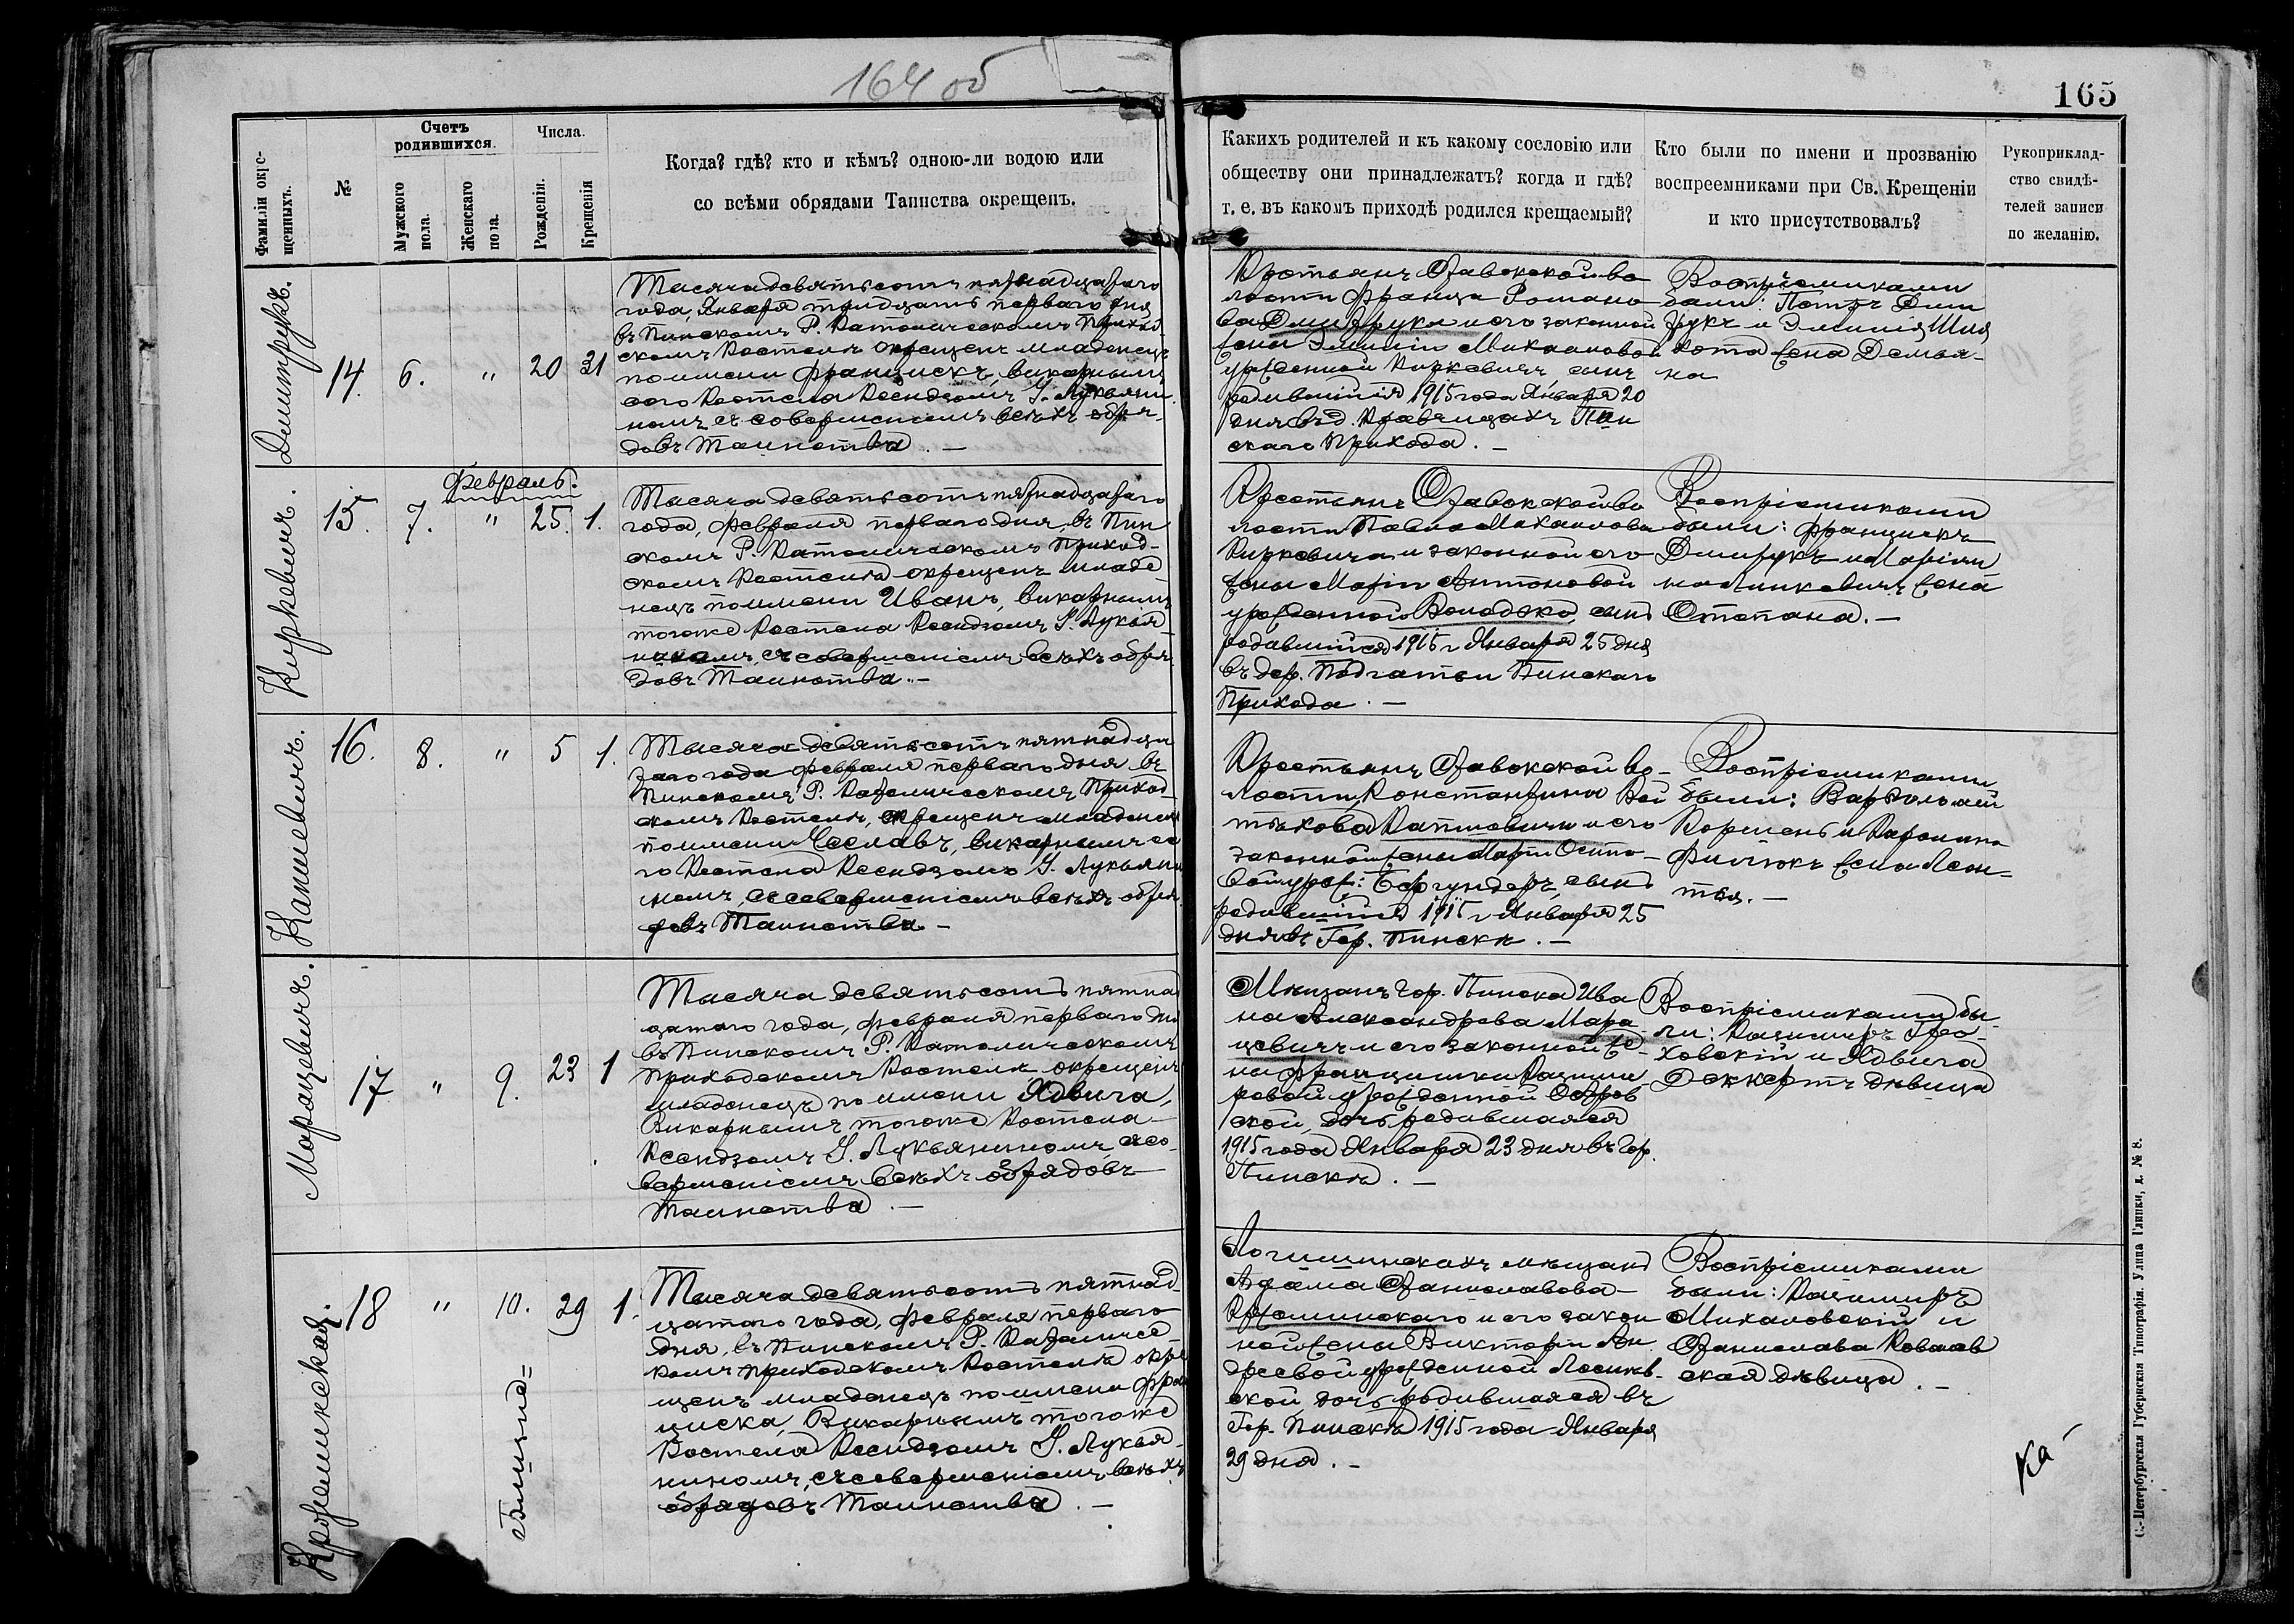 164 об
165
Фамиліи окре-
щенныхъ.
№
Счетъ
родившихся.
Мужского
пола.
Женскаго
пола.
Числа.
Рожденія.
Крещенія
Когда? гдѣ? кто и кѣмъ? одною-ли водою или
со всѣми обрядами Таинства окрещенъ.
Какихъ родителей и къ какому сословію или
обществу они принадлежатъ? когда и гдѣ?
т. е. въ какомъ приходѣ родился крещаемый?
Кто были по имени и прозванію
воспреемниками при Св. Крещеніи
и кто присутствовалъ?
Рукоприклад-
ство свидѣ-
телей записи
по желанію.
Дмитрукъ.
14. 6. " 20 31
Тысяча девятьсотъ пятнадцатаго
года, Января тридцать перваго дня
въ Пинскомъ Р. Католическомъ Приход-
скомъ Костелѣ окрещенъ младенецъ
по имени Францискъ, викарнымъ
сего Костела Ксендзомъ У. Лукьяни
номъ съ совершеніемъ всѣхъ обря-
довъ Таинства. —
Крестьянъ Ставокской во
лости Франца Романо
ва Дмитрука и его законной
жены Эмиліи Михаиловой
урожденной Киркевичъ, сынъ
родившійся 1915 года Января 20
дня въ д. Кравчицахъ Пин
скаго Прихода. —
Воспріемниками
были: Петръ Дми
трукъ и Эмилія
жена Демья-
на
Киркевичъ.
Февраль.
15. 7. " 25. 1.
Тысяча девятьсотъ пятнадцатаго
года, Февраля перваго дня, въ Пин
скомъ Р. Католическомъ Приход-
скомъ Костелѣ окрещенъ младе
нецъ по имени Иванъ, викарнымъ
тогоже Костела Ксендзомъ У. Лукья-
ниномъ, съ совершеніемъ всѣхъ обря-
довъ Таинства. —
Крестьянъ Ставокской во
лости Павла Михаилова
Киркевича и законной его
жены Маріи Антоновой
урожденной Колодко, сынъ
родившійся 1915 г Января 25 дня
въ дер. Подгатьи Пинскаго
Прихода. —
Воспріемниками
были: Францискъ
Дмитрукъ и Маріян
на жена
Степана. —
Капшевичъ.
16. 8. " 5 1.
Тысяча девятьсотъ пятнадца
таго года Февраля перваго дня въ
Пинскомъ Р. Католическомъ Приход
скомъ Костелѣ, окрещенъ младенецъ
по имени Чеславъ, викарнымъ се
го Костела Ксендзомъ У. Лукьяни
номъ, съ совершеніемъ всѣхъ обря
довъ Таинства —
Крестьянъ Ставокской во-
лости, Константина Вой
тѣхова и его
законной жены Маріи Осипо-
вой урож: сынъ
родившійся 1915 г Января 25
дня въ Гор. Пинскѣ. —
Воспріемниками
были: Варѳоломей
и Каролина
жена Леон-
тья. —
Марацевичъ.
17 " 9. 23 1
Тысяча девятьсотъ пятнад
цатаго года, Февраля перваго дня
въ Пинскомъ Р. Католическомъ
Приходскомъ Костелѣ окрещенъ
младенецъ по имени Ядвига,
Викарнымъ тогоже Костела
Ксендзомъ У. Лукьяниномъ, съ со-
вершеніемъ всѣхъ обрядовъ
Таинства. —
Мѣщанъ Гор. Пинска Ива
на Александрова Мара-
цевичъ и его законной же-
ны Францишки Казими
ровой урожденной Остров
ской, дочь родившаяся
1915 года Января 23 дня въ Гор.
Пинскѣ. —
Воспріемниками бы-
ли: Казимиръ
и Ядвига
Деккертъ дѣвица
Кржеминская.
18 " 10. 29 1.
Близне=
Тысяча девятьсотъ пятнад-
цатаго года, Февраля перваго
дня, въ Пинскомъ Р. Католичес-
комъ Приходскомъ Костелѣ окре
щенъ младенецъ по имени Фран
циска, Викарнымъ тогоже
Костела Ксендзомъ У. Лукья-
ниномъ, съ совершеніемъ всѣхъ
обрядовъ Таинства. —
Логишинскихъ мѣщанъ
Адама Станиславова
Кржеминскаго и его закон
ной жены Викторіи Ан
дреевой урожденной
ской, дочь родившаяся въ
Гор. Пинскѣ 1915 года Января
29 дня. —
Воспріемниками
были: Казимиръ
Михаловскій и
Станислава Ковалев
ская дѣвица. —
С.-Петербургская Губернская Типографія. Улица Глинки, д. № 8.